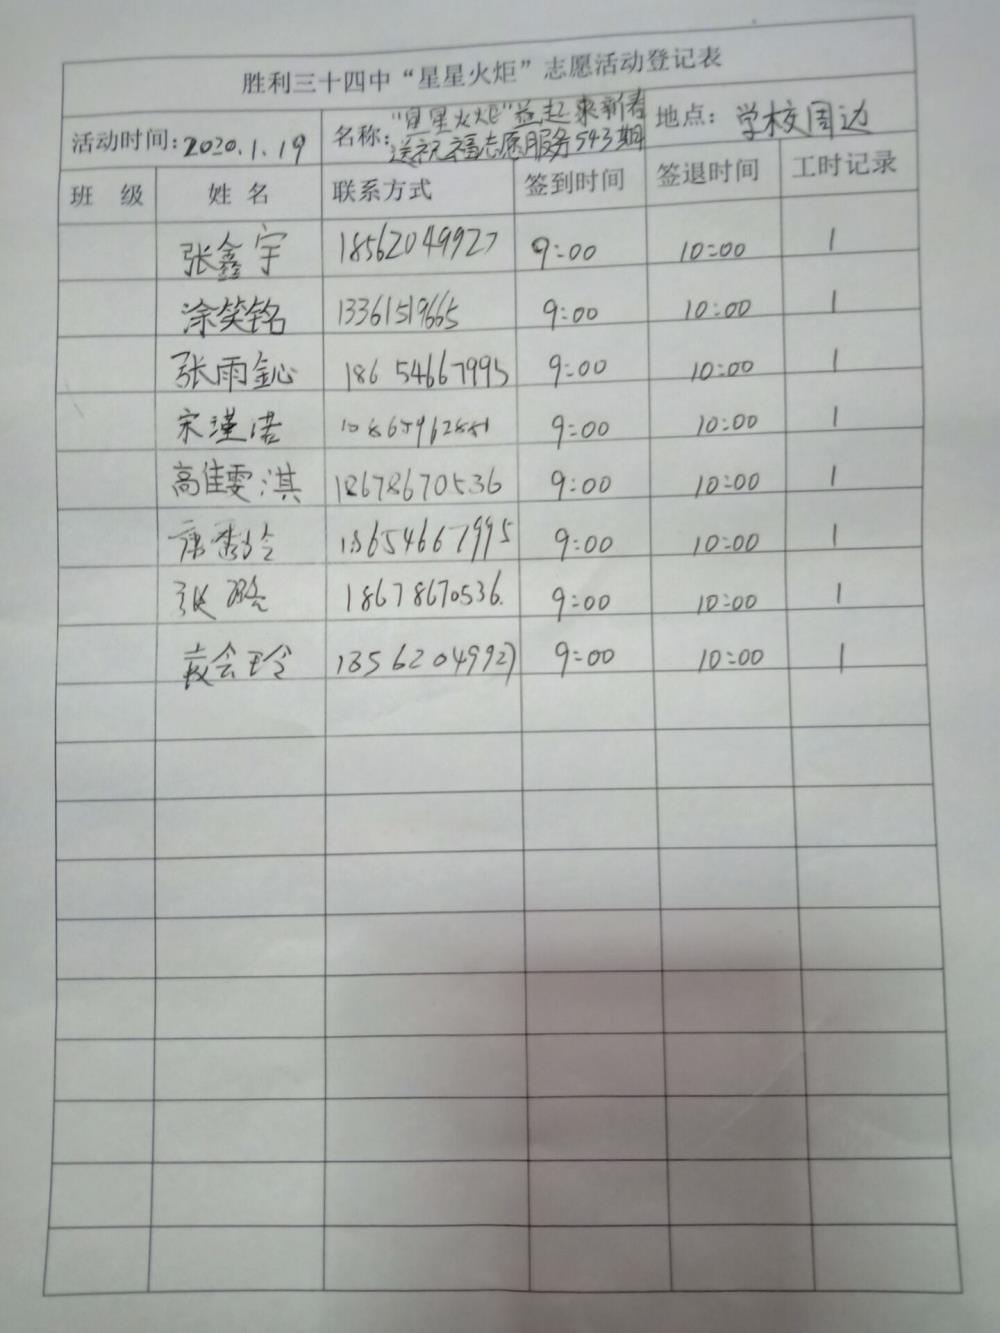 胜利三十四中“星星火炬”志愿活动登记表
活动时间：2020.1.19 名称：“星星火炬”益起来新春 地点：学校周边
送祝福志愿服务543期
班 级 姓 名 联系方式 签到时间 签退时间 工时记录
张鑫宇 18562049927 9:00 10:00 1
涂笑铭 13361519665 9:00 10:00 1
张雨鈊 18654667995 9:00 10:00 1
宋瑾诺 9:00 10:00 1
高佳雯淇 18678670536 9:00 10:00 1
18654667995 9:00 10:00 1
张 18678670536 9:00 10:00 1
会玲 18562049927 9:00 10:00 1